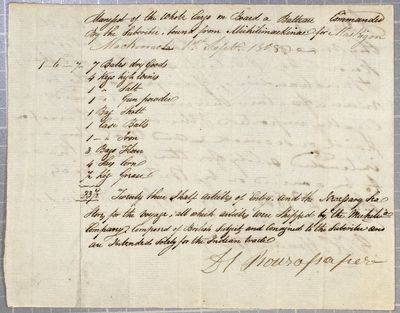 Manifest of the Whole Cargo on Board a Batteau Commanded
By the Subscriber, bound from Michilimackinac for Maskigon
Mackinac 1st Septr 1808
7 Bales dry Goods
4 kegs high Wines
1 " Salt
1 " Gun powder
1 Bag Shott
1 Case Balls
1 " Iron
3 Bags Flour
4 Bags Corn
½ keg Grease
23½ Twenty three & half articles of Entry, and the Necessary Sea
Stores for the Voyage; all which articles were Shipped by the Michilia
Company, Composed of British Subjects and Consigned to the Subscriber and
are Intended solely for the Indian trade